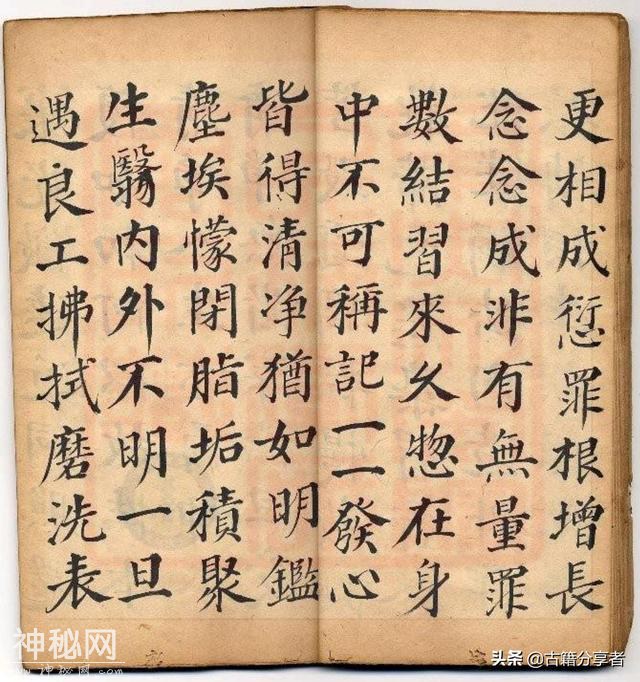 更相成愆罪根增長
念念成非有無量罪
數結習來久惣在身
中不可稱記一一發心
皆得清净猶如明鑑
塵埃懞閉脂垢積聚
生翳內外不明一旦
遇良工拂拭磨洗表
神秘网
头条 @古籍分享者